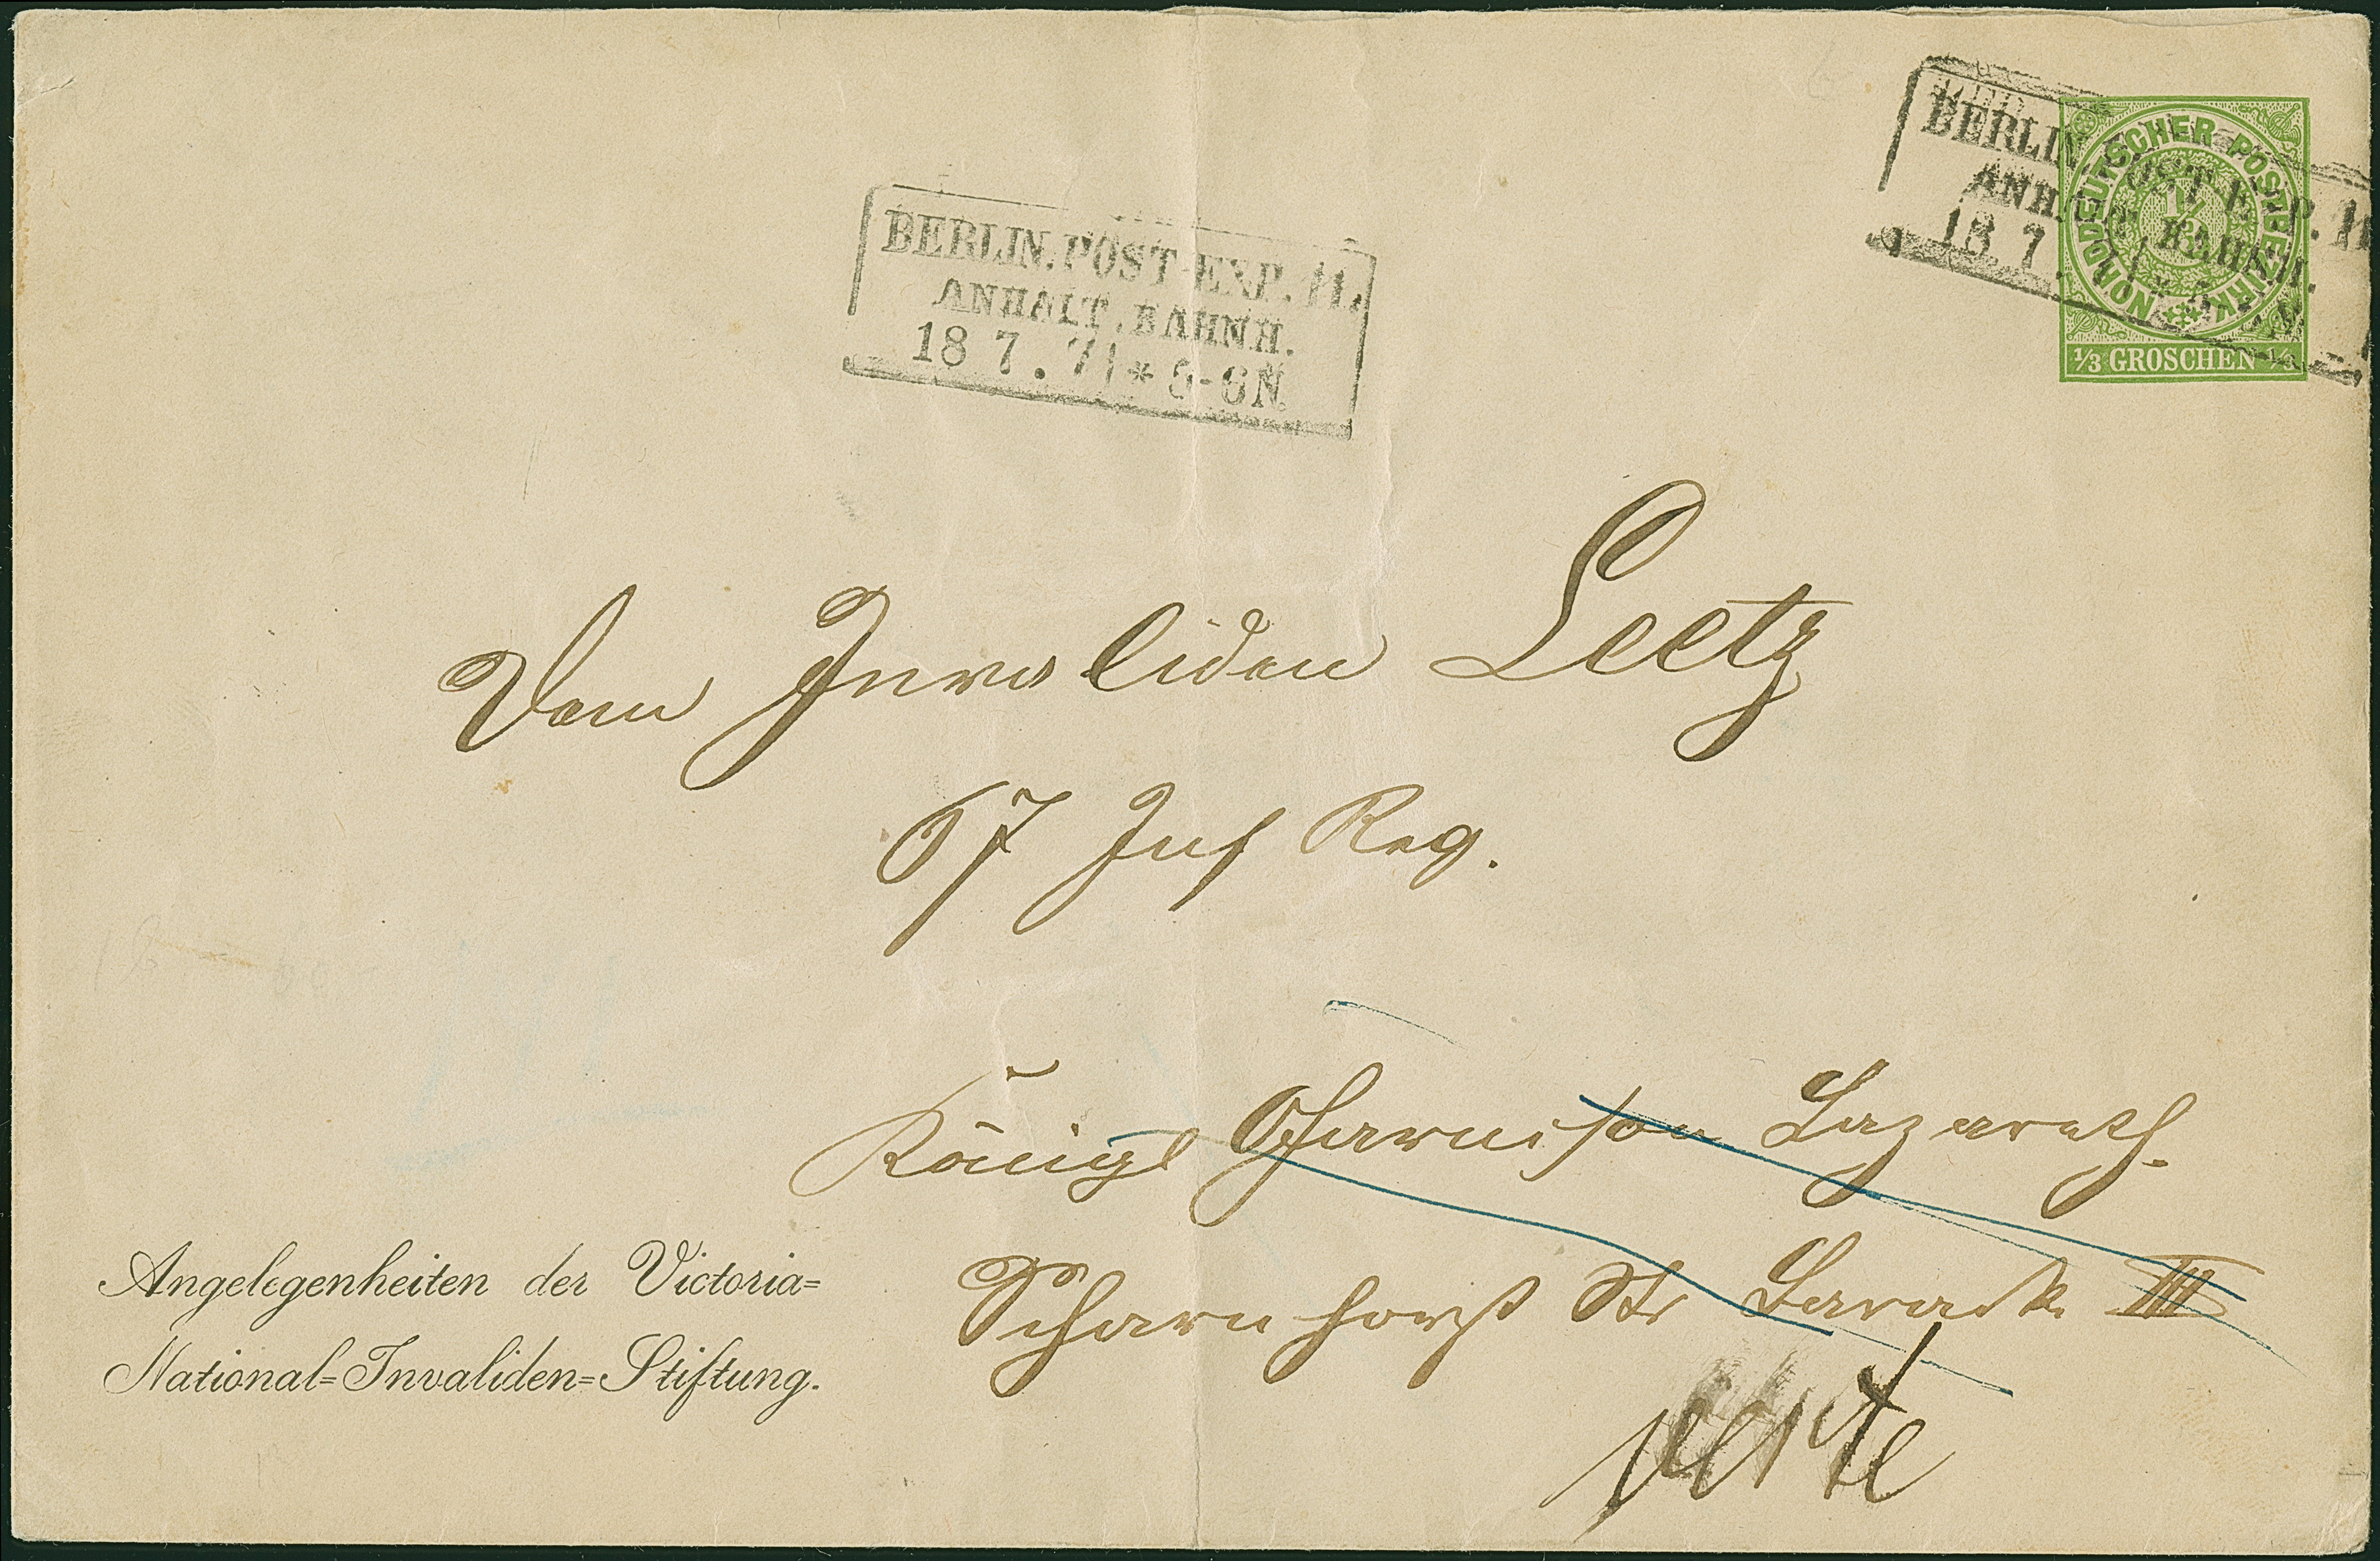 BERLIN. POST-EXP. 11.
ANHALT. BAHNH.
18 7. 71 * 5-6N.
BERLIN POST E P. 11
ANH T. BAHNH.
18. 7.
NORDDEUTSCHER POSTBEZIRK
1/3
1/3 GROSCHEN 1/3
Dem Invaliden Leetz
67 Inf Reg.
Königl Garnison Lazareth.
Scharnhorst Str Barack III
Angelegenheiten der Victoria=
National=Invaliden=Stiftung.